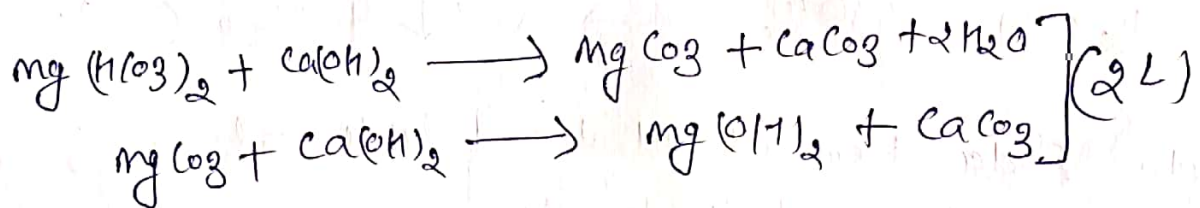 Mg(HCO3)2 + Ca(OH)2 ⟶ MgCO3 + CaCO3 + 2H2O ] (2L)
MgCO3 + Ca(OH)2 ⟶ Mg(OH)2 + CaCO3